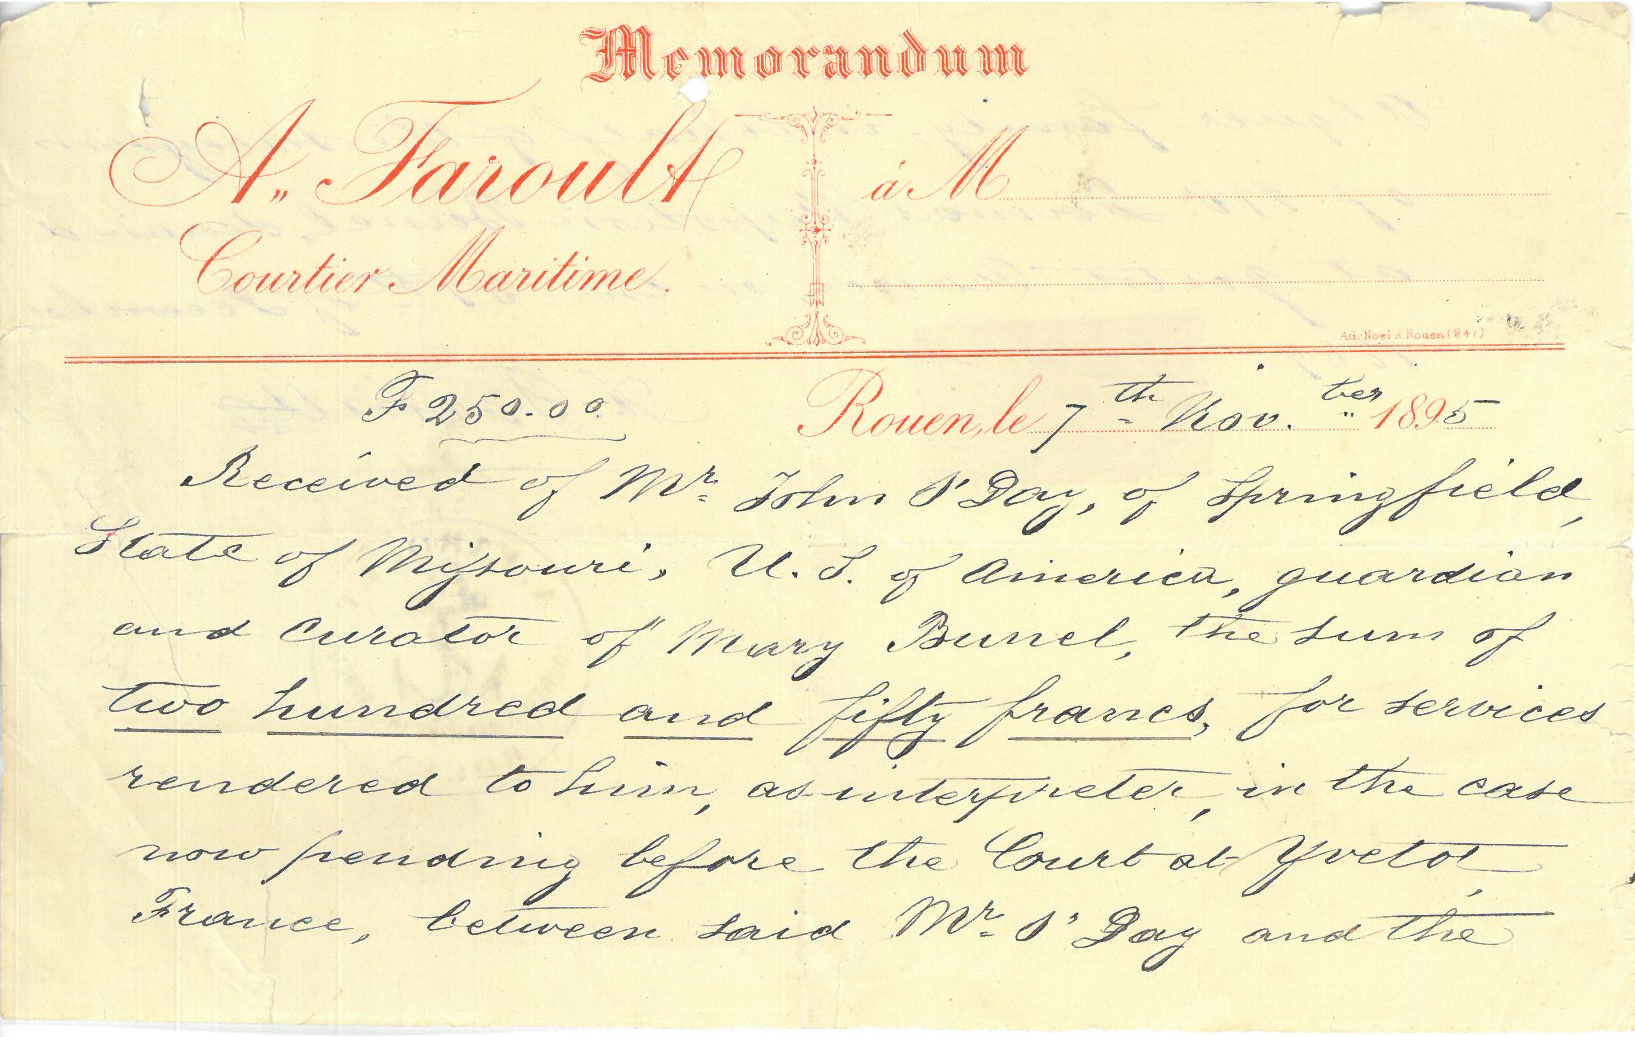 Memorandum
A. Faroult
Courtier Maritime.
à M
Ad. Noel à Rouen (841)
F 250.00.
Rouen, le 7th Nov.ber 1895
Received of Mr John O'Day, of Springfield,
State of Missouri, U. S. of America, guardian
and curator of Mary Bunel, the sum of
two hundred and fifty francs, for services
rendered to him, as interpreter, in the case
now pending before the Court at Yvetot,
France, between said Mr O'Day and the